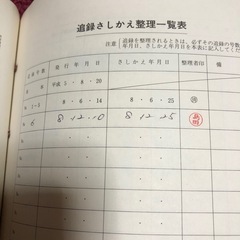 追録さしかえ整理一覧表
注意 追録を整理されるときは、必ずその追録の号数
年月日、さしかえ年月日を本表に記入してく
追録号数 発行年月日 さしかえ年月日 整理者印 備
平成5・8・20
1-5 8・6・14 8・6・25
6 8・12・10 8・12・25